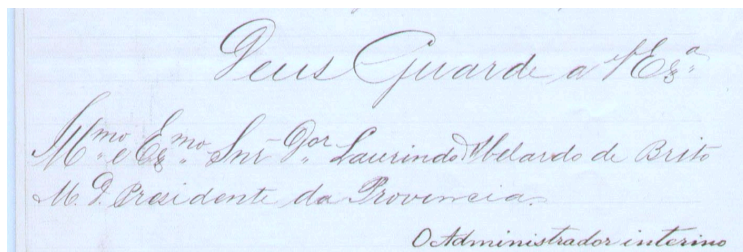 Deus Guarde a V Exª
Illmo e Exmo Snr Dor Laurindo Abelardo de Brito
M. D. Presidente da Provencia.
O Administrador interino